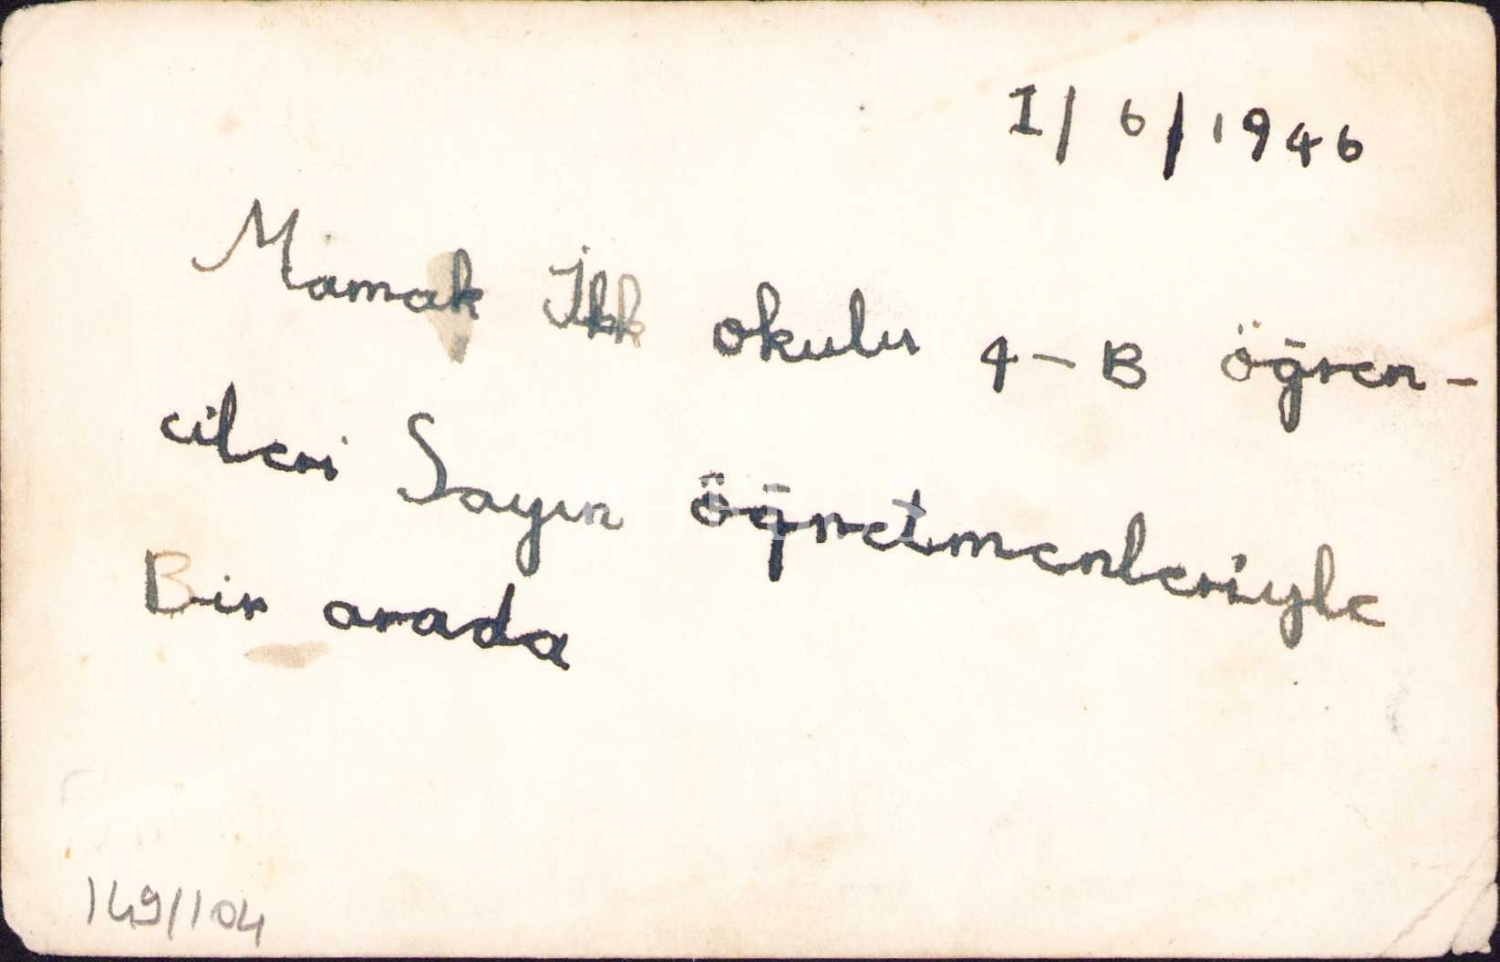 I/6/1946
Mamak İlk okulu 4-B öğren-
cileri Sayın öğretmenleriyle
Bir arada
149/104